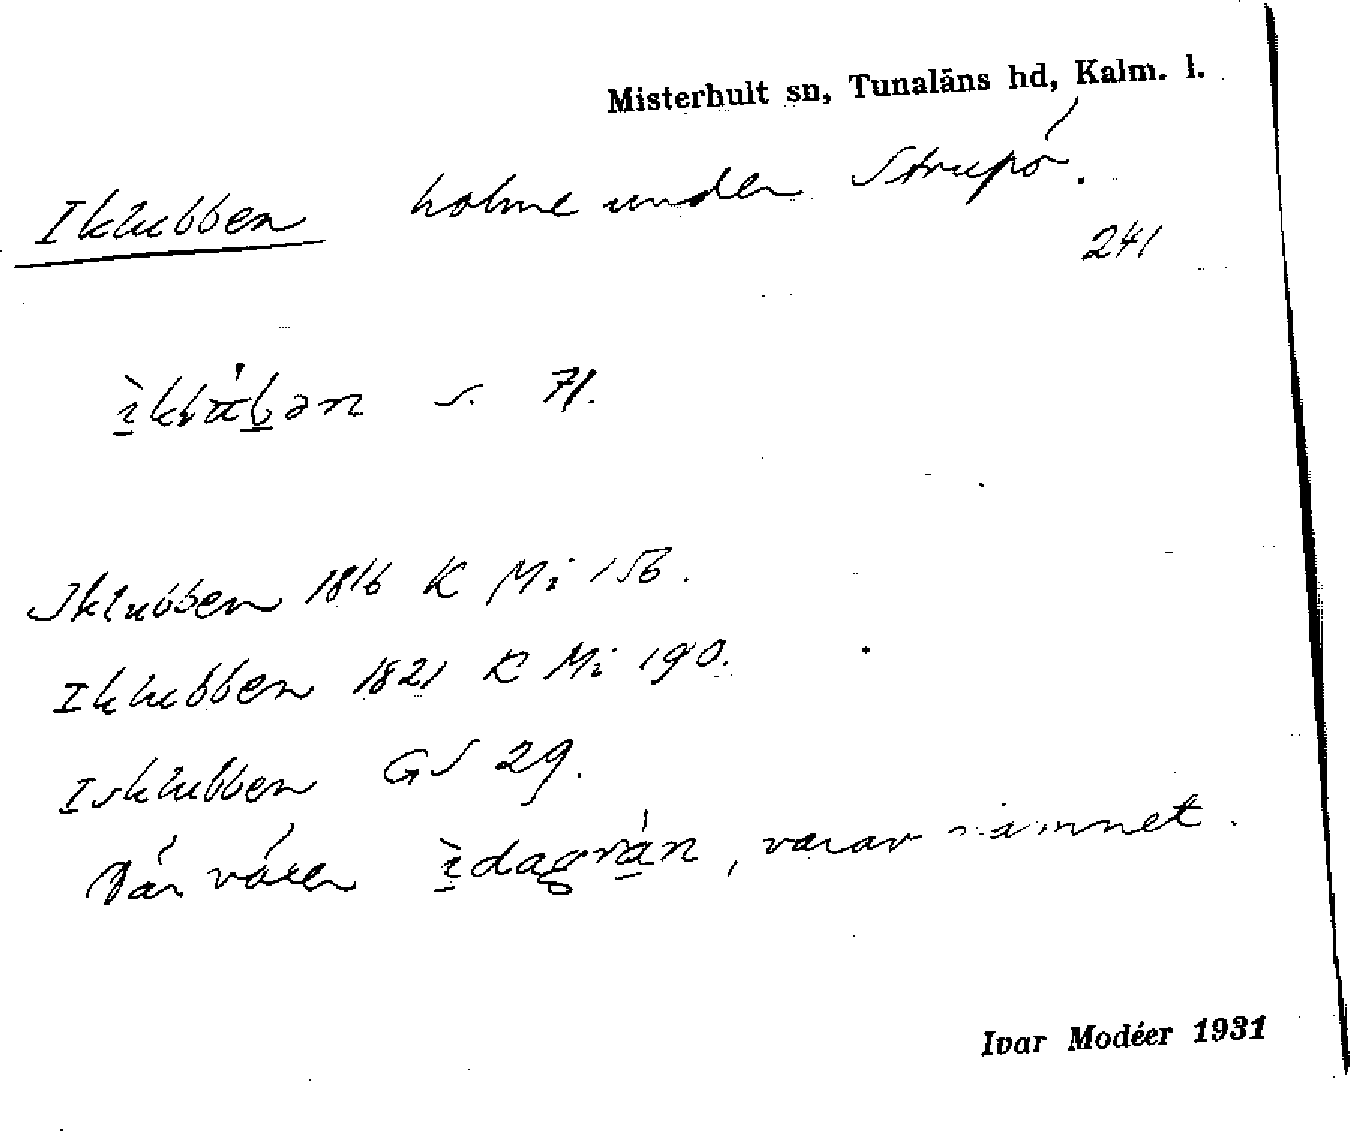 Misterhult sn, Tunaläns hd, Kalm. l.
Iklubben holme under Strupö.
241
s. 71.
Iklubben 1816 K Mi 156.
Iklubben 1821 K Mi 190.
Isklubben GS 29.
Där växer, varav namnet.
Ivar Modéer 1931